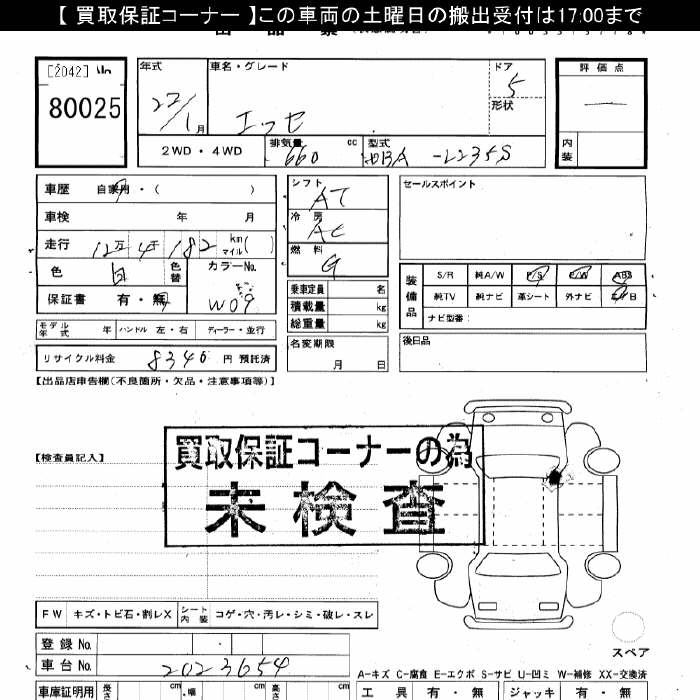 【 買取保証コーナー 】この車両の土曜日の搬出受付は17:00まで
[2042]
80025
年式
22/1月
車名・グレード
エッセ
ドア
5
形状
評価点
内装
2WD・4WD
排気量 cc
660
型式
-L235S
車歴 自家用・( )
車検 年 月
走行 12万4千182 km マイル( )
色 白 色替
カラーNo.
W09
保証書 有・無
シフト
AT
冷房
AC
燃料
G
乗車定員 名
積載量 kg
総重量 kg
セールスポイント
装備品
S/R 純A/W P/S P/W ABS
純TV 純ナビ 革シート 外ナビ エアB
ナビ型番:
モデル年式 年 ハンドル 左・右 ディーラー・並行
リサイクル料金 8340 円 預託済
名変期限
月 日
後日品
【出品店申告欄(不良箇所・欠品・注意事項等)】
【検査員記入】
買取保証コーナーの為
未検査
FW キズ・トビ石・割レX シート内装 コゲ・穴・汚レ・シミ・破レ・スレ
登録No.
車台No. 2023654
スペア
A-キズ C-腐食 E-エクボ S-サビ U-凹ミ W-補修 XX-交換済
車庫証明用 長さ cm 幅 cm 高さ cm
工具 有・無 ジャッキ 有・無